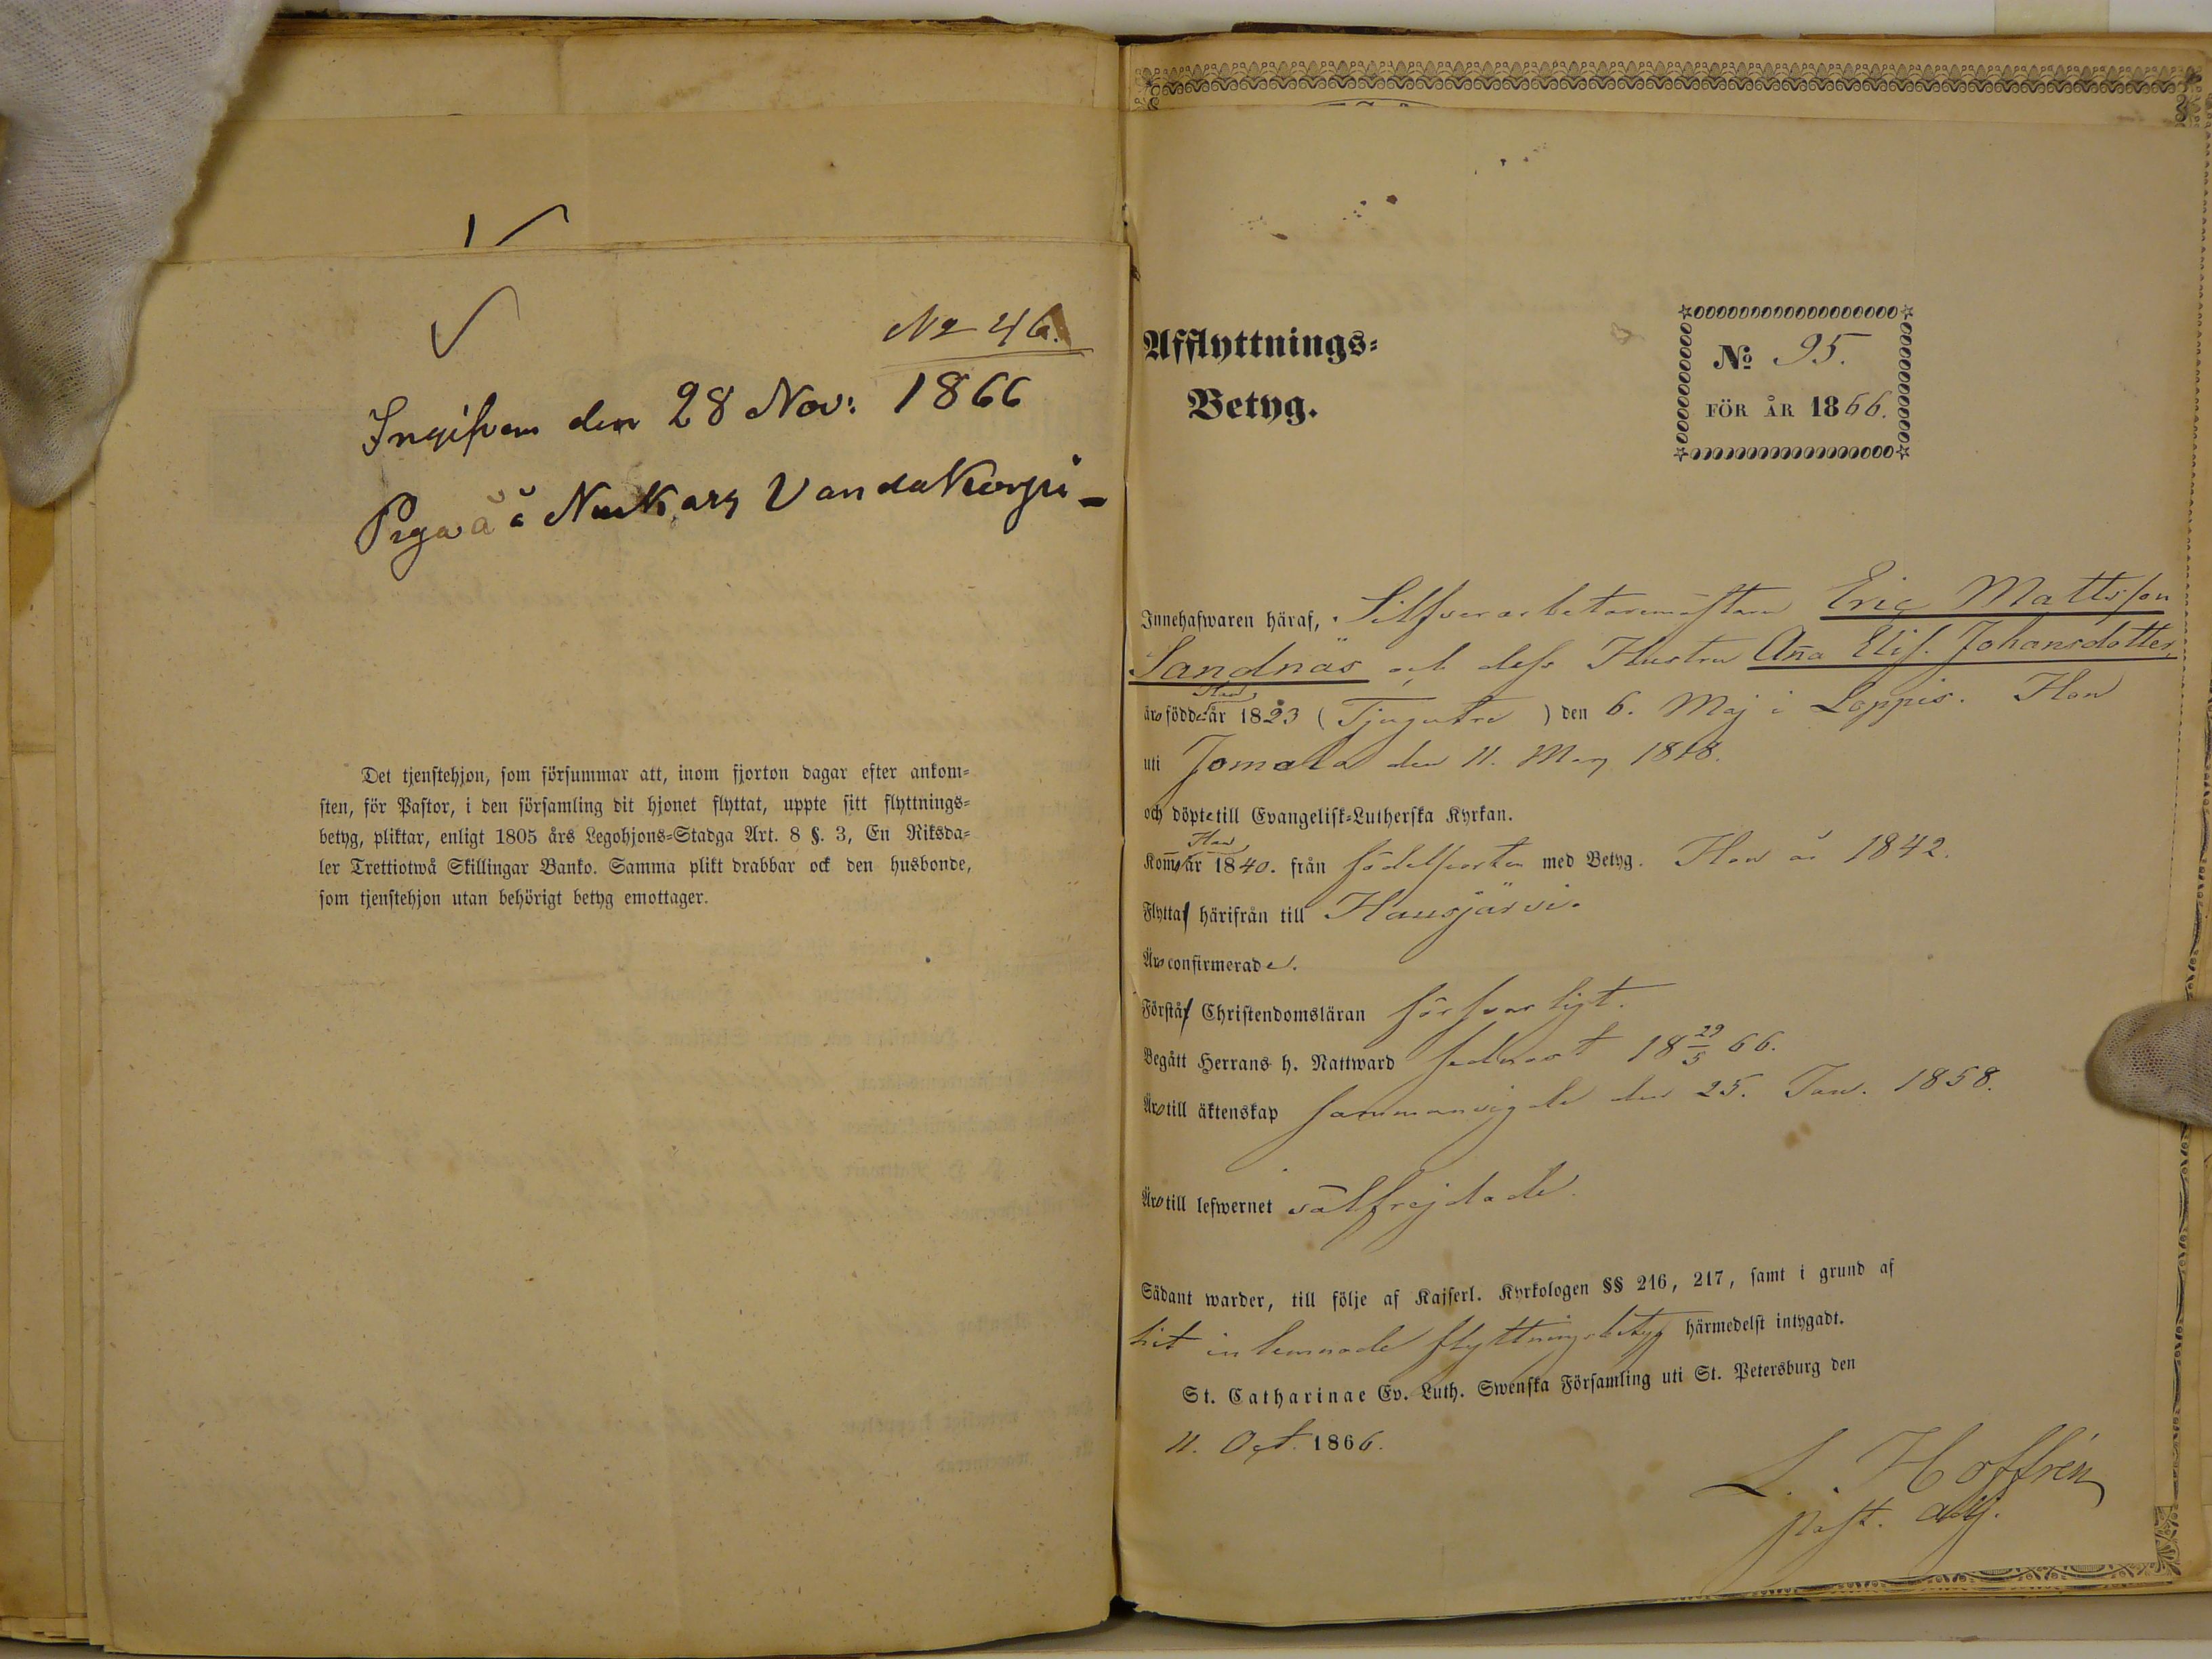 No 46.
Ingifven den 28 Nov: 1866
Piga å Nukars Vandakorpi -
Det tjenstehjon, som försummar att, inom fjorton dagar efter ankom-
sten, för Pastor, i den församling dit hjonet flyttat, uppte sitt flyttnings-
betyg, pliktar, enligt 1805 års Legohjons-Stadga Art. 8 §. 3, En Riksda-
ler Trettiotwå Skillingar Banko. Samma plikt drabbar ock den husbonde,
som tjenstehjon utan behörigt betyg emottager.
Afflyttnings-
Betyg.
No 95.
FÖR ÅR 1866.
Innehafwaren häraf, Silfverarbetaremästaren Eric Mattsson
Sandnäs och dess Hustru Aña Elis. Johansdotter,
Han
äro födde år 1823 (Tjugutre) den 6. Maj i Loppis. Hon
uti Jomala den 11. May 1818.
och döpte till Evangelisk-Lutherska Kyrkan.
Han
Kom̄o år 1840. från födelseorten med Betyg. Hon år 1842.
Flytta härifrån till Hausjärvi.
Äro confirmerade.
Förstå Christendomsläran försvarligt.
Begått Herrans h. Nattward sednast 18 29/5 66.
Äro till äktenskap sammanvigde den 25. Jan. 1858.
Äro till lefwernet välfrejdade.
Sådant warder, till följe af Kajserl. Kyrkologen §§ 216, 217, samt i grund af
hit inlemnade flyttningsbetyg härmedelst intygadt.
St. Catharinae Ev. Luth. Swenska Församling uti St. Petersburg den
11. Oct. 1866.
L. Hoffrén
past. adj.